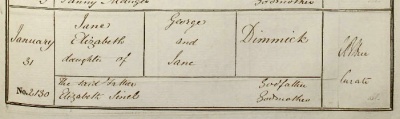 Fanny Godmother
January
31
No. 2130
Jane
Elizabeth
daughter of
George
and
Jane
Dimmick
Curate
The said Father Godfather
Elizabeth Godmother